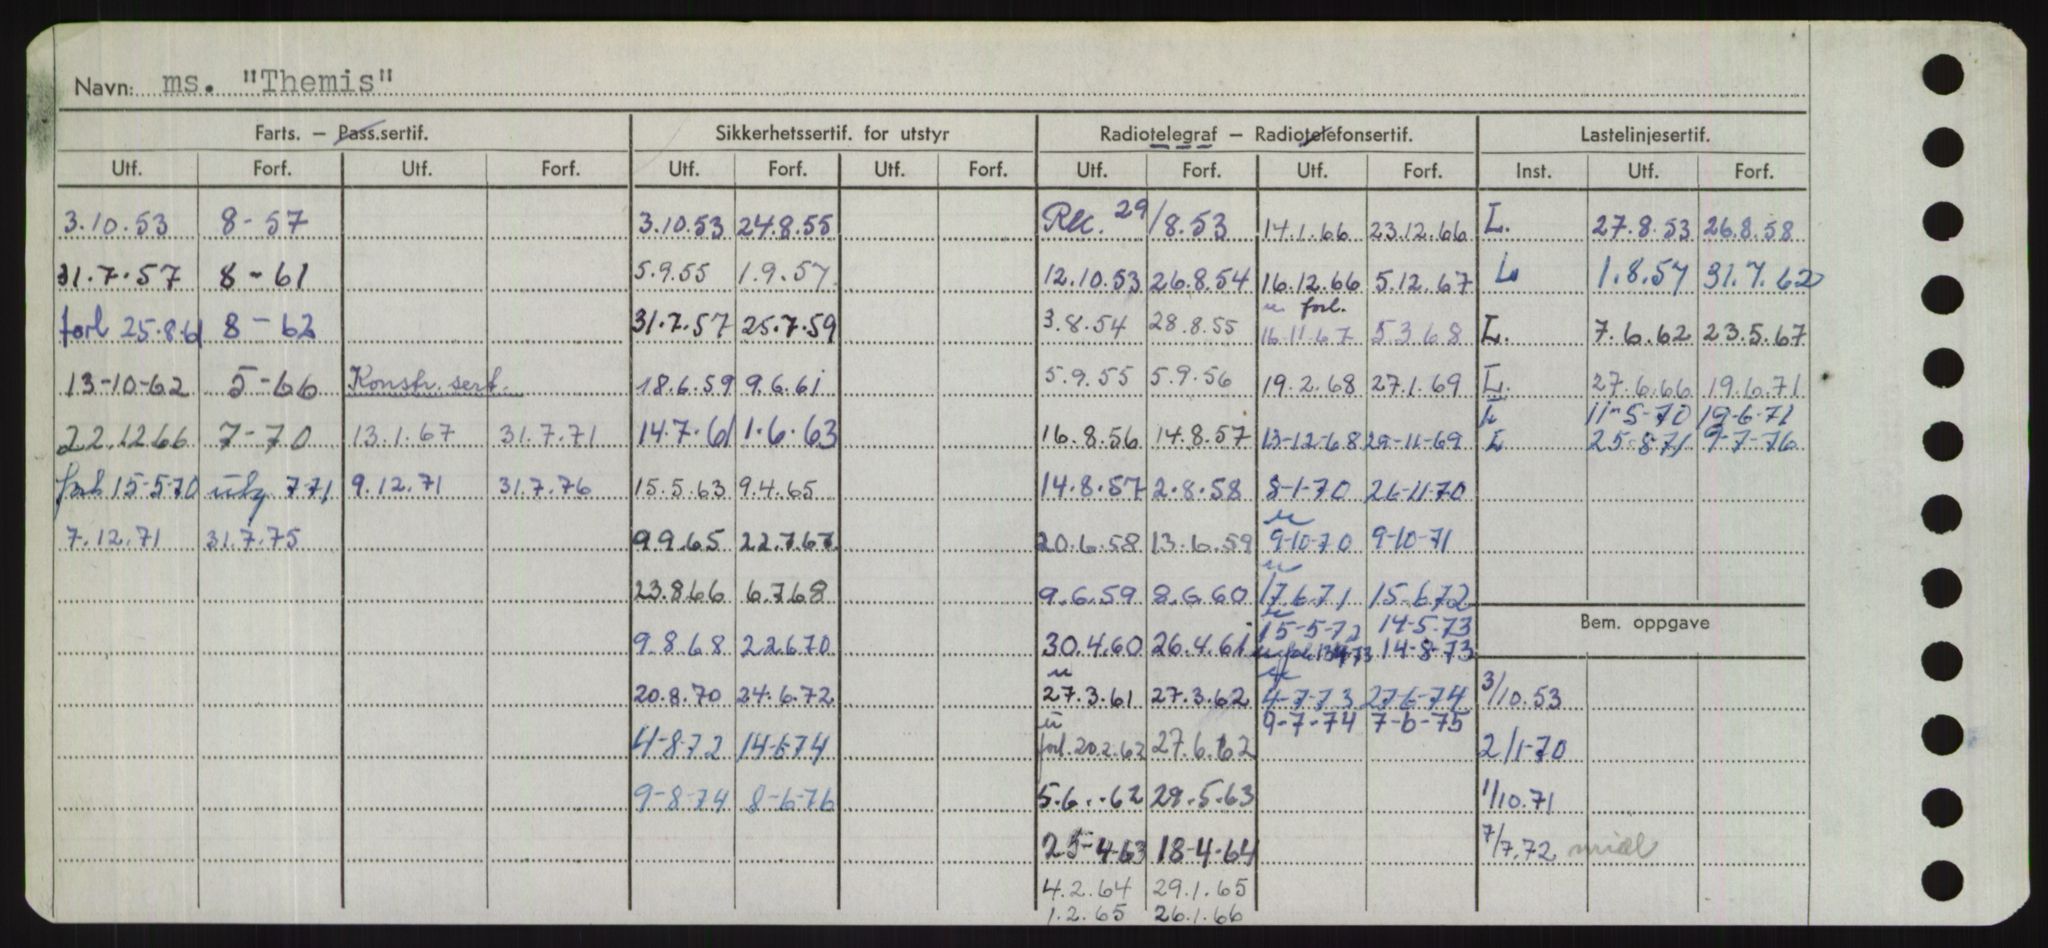 Navn: ms. "Themis"
Farts. – Pass.sertif. Sikkerhetssertif. for utstyr Radiotelegraf – Radiotelefonsertif. Lastelinjesertif.
Utf. Forf. Utf. Forf. Utf. Forf. Utf. Forf. Utf. Forf. Utf. Forf. Inst. Utf. Forf.
3.10.53 8-57 3.10.53 24.8.55 Rec. 29/8.53 14.1.66 23.12.66 L. 27.8.53 26.8.58
31.7.57 8-61 5.9.55 1.9.57 12.10.53 26.8.54 16.12.66 5.12.67 L 1.8.57 31.7.62
u forl.
forl 25.8.61 8-62 31.7.57 25.7.59 3.8.54 28.8.55 16.11.67 5 3 68 L. 7.6.62 23.5.67
13-10-62 5-66 Konstr. sert. 18.6.59 9.6.61 5.9.55 5.9.56 19.2.68 27.1.69 L. 27.6.66 19.6.71
L 11-5-70 19-6-71
22.12.66 7-70 13.1.67 31.7.71 14.7.61 1.6.63 16.8.56 14.8.57 13-12-68 29-11-69 L 25-8-71 9-7-76
forl 15-5-70 7 71 9.12.71 31.7.76 15.5.63 9.4.65 14.8.57 2.8.58 8-1-70 26-11-70
u
7.12.71 31.7.75 9.9.65 22.7.67 20.6.58 13.6.59 9-10-70 9-10-71
u
23.8.66 6.7.68 9.6.59 8.6.60 17.6.71 15-6-72
u
Bem. oppgave
15-5-72 14-5-73
9.8.68 22.6.70 30.4.60 26.4.61 14-8-73
u
20.8.70 24.6.72 27.3.61 27.3.62 4-7-73 27-6-74 3/10.53
u 9-7-74 7-6-75
4-8-72 14-6-74 forl. 20.2.62 27.6.62 2/1-70
9-8-74 8-6-76 5.6..62 29.5.63 1/10.71
25-4-63 18-4-64 7/7.72
4.2.64 29.1.65
1.2.65 26.1.66